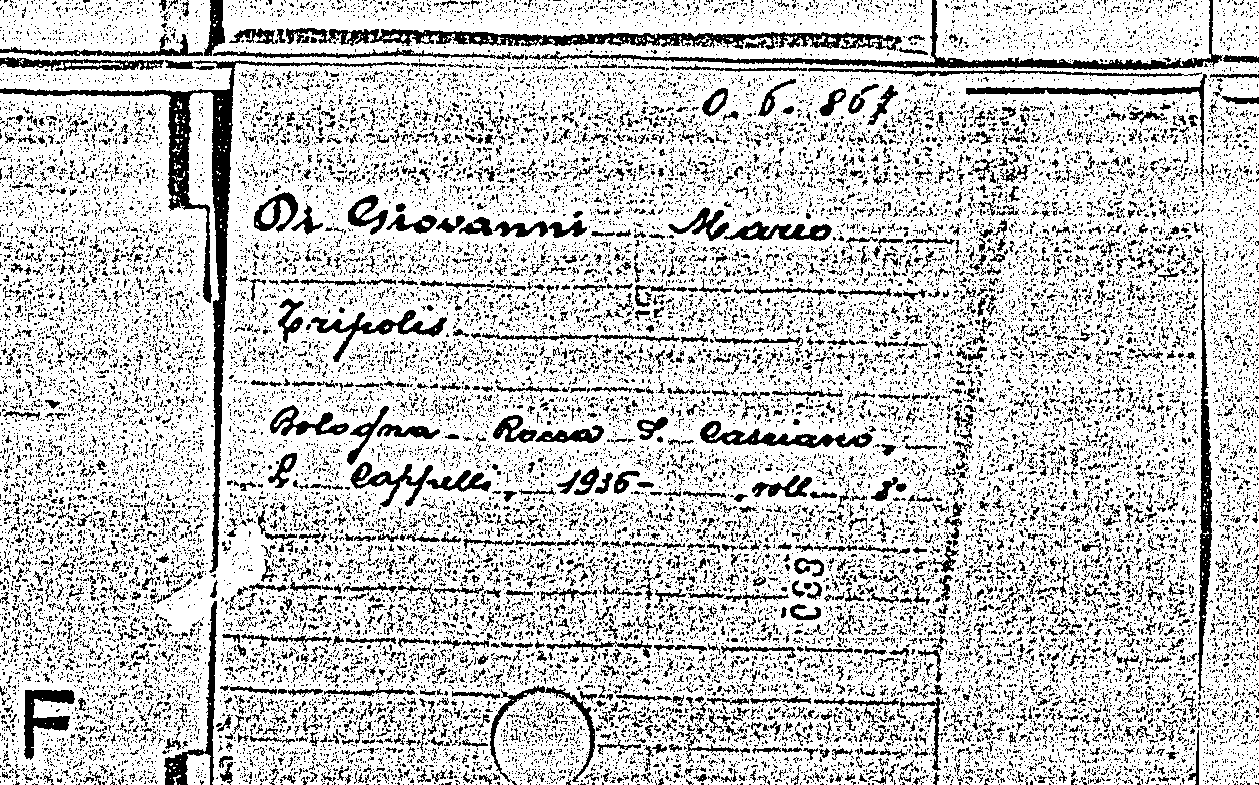 O. 6. 867
Di Giovanni Mario
Tripolis
Bologna - Rocca S. Casciano,
L. Cappelli, 1936- , roll. 8°
F